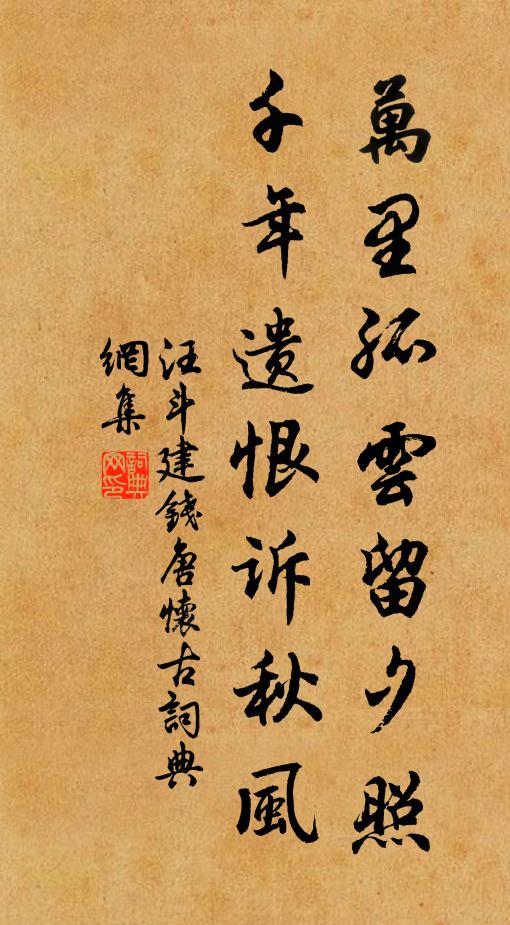 萬里孤雲留夕照
千年遺恨诉秋風
汪斗建錢唐懷古詞典
網集
詞典
网印